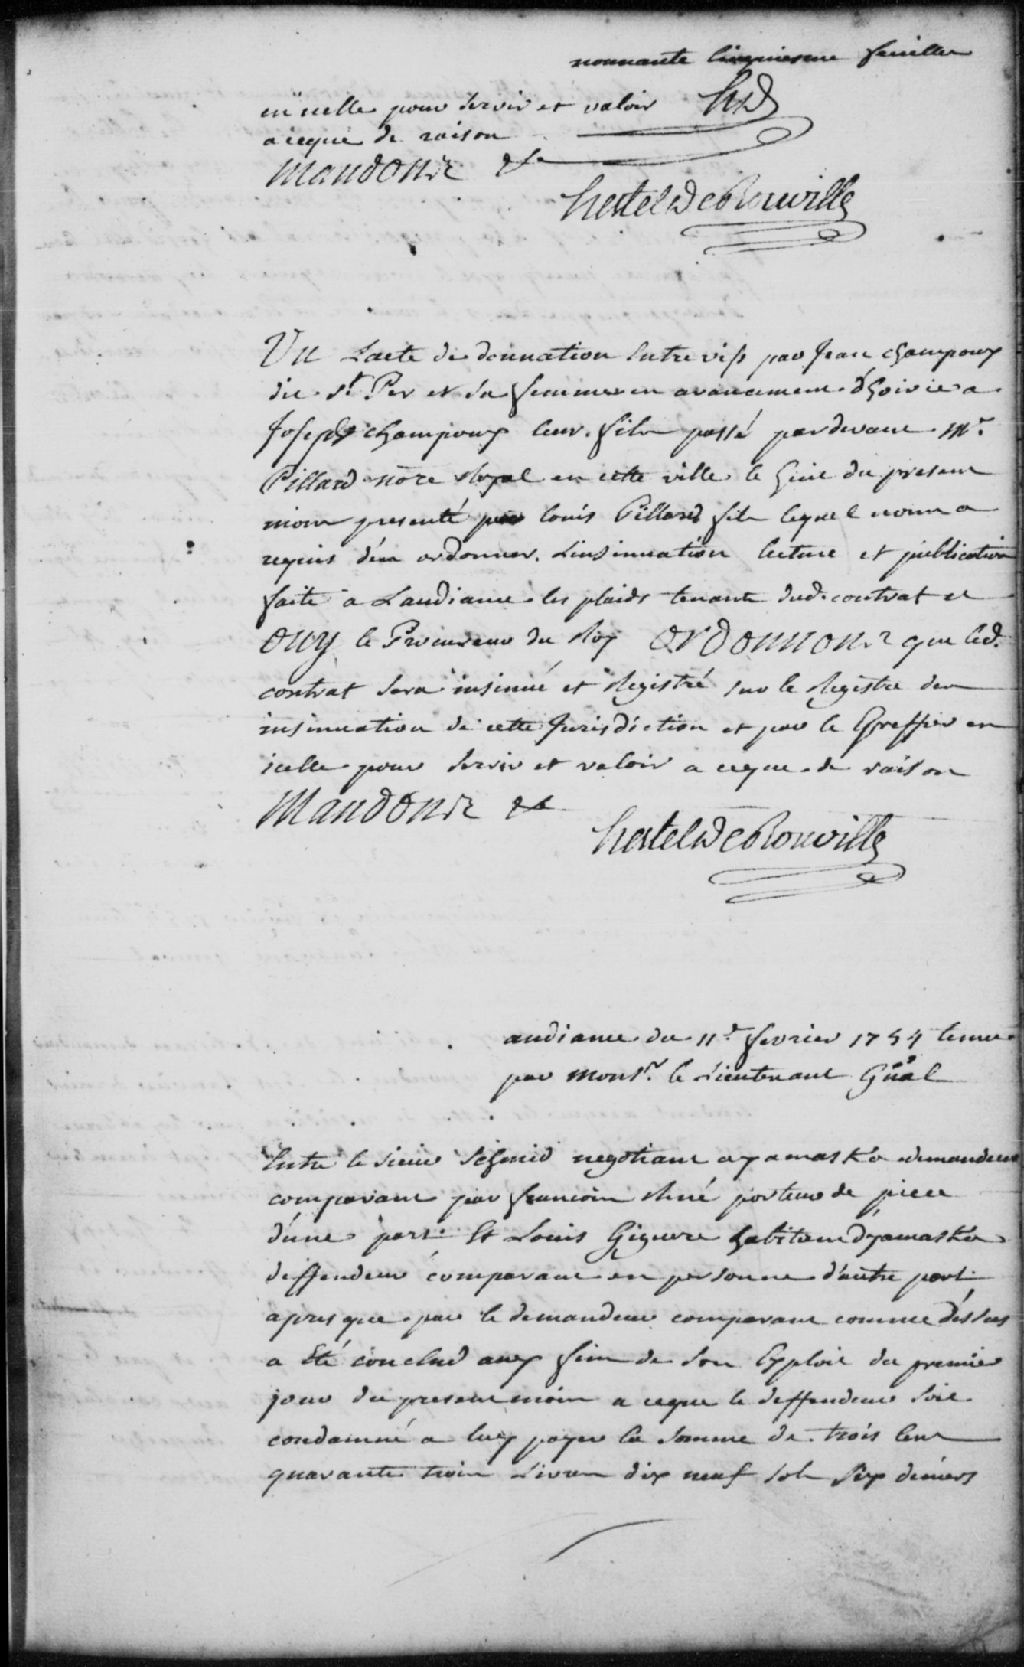 nonnante Cinquiesme feuillet
en icelle pour servir et valoir HsD
a ceque de raison
Mandons &c
hertel De Rouville
Vu Lacte de donnation Entre vifs par Jean champoux
dit st. Per et sa femme en avancement d'hoirie a
Joseph champoux leur fils passé pardevant Mr.
Pillard no.re Royal en cette ville le huit du present
mois presenté par louis Pillard fils lequel nous a
requis d'en ordonner Linsinuation lecture et publication
faite a Laudiance les plaids tenants dud. contrat et
ouy le Procureur du Roy Ordonnons que led.
contrat sera insinué et Registré sur le Registre des
insinuation de cette Jurisdiction et par le Greffier en
icelle pour servir et valoir a ceque de raison
Mandons &c
hertel De Rouville
audiance du 11e fevrier 1754 tenue
par Monsr. le Lieutenant Gnāl
Entre le sieur Schmid negotiant a yamaska demandeur
comparant par francois chiné porteur de pieces
d'une part Et Louis Giguere habitant d'yamaska
deffendeur comparant en personne d'autre part
apres que par le demandeur comparant comme dessus
a Eté conclud aux fins de son Exploit du premier
jour du present mois a ceque le deffendeur soit
condamné a luy payer la somme de trois cent
quarante trois Livres dix neuf sols six deniers